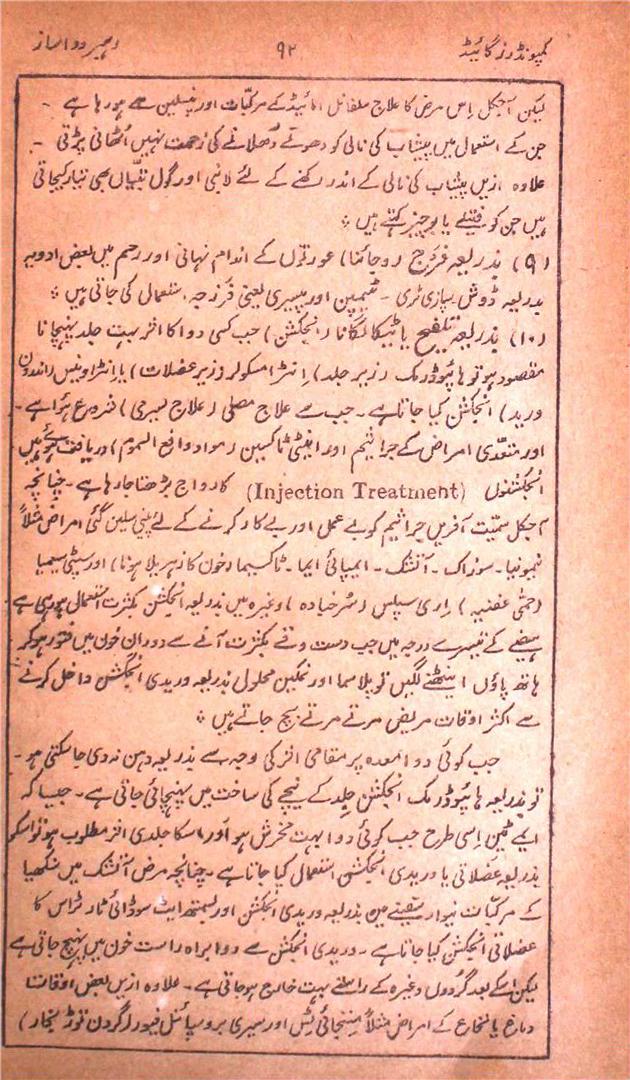 کمپونڈرز گائیڈ ۹۲ رہبر دواساز
لیکن آجکل اِس مرض کا علاج سلفانل امائیڈ کے مرکبّات اور پنسلین سے ہو رہا ہے ۔
جن کے استعمال میں پیشاب کی نالی کو دھونے دُھلانے کی زحمت نہیں اُٹھانی پڑتی ۔
علاوہ ازیں پیشاب کی نالی کے اندر رکھنے کے لئے لانبی اور گول بتیّاں بھی تیار کیجاتی
ہیں جن کو فتیلے یا بوجیز کہتے ہیں ۔
(۹) بذریعہ فَرَوَج (وجائنا) عورتوں کے اندام نہانی اور رحم میں بعض ادویہ
بذریعہ ڈوش ۔ سپازی ٹری ۔ ٹیمپن اور پیسری یعنی فَرزجہ استعمال کی جاتی ہیں ۔
(۱۰) بذریعہ تلقیح یا ٹیکا لگانا (انجکشن) جب کسی دوا کا اثر بہت جلد پہنچانا
مقصود ہو تو ہائپوڈرمک (زیر جلد) اِنٹرامسکولر (زیر عضلات) یا اِنٹراوینس (اندرون
ورید) انجکشن کیا جاتا ہے ۔ جب سے علاج مصلی (علاج سیری) شروع ہُوا ہے ۔
اور متعدّی امراض کے جراثیم اور اینٹی ٹاکسین (مواد دافع السموم) دریافت ہوئے ہیں
انجکشنوں (Injection Treatment) کا رواج بڑھتا جا رہا ہے ۔ چنانچہ
آجکل سمیّت آفریں جراثیم کو بے عمل اور بے کار کرنے کے لئے پنسلین کئی امراض مثلاً
نمونیا ۔ سوزاک ۔ آتشک ۔ ایمپائی ایما ۔ ٹاکسیما (خون کا زہریلا ہونا) اور سپٹی سیمیا
(حمّیٰ عفنیہ) اِری سیپلس (سُرخبادہ) وغیرہ میں بذریعہ انجکشن بکثرت استعمال ہو رہی ہے
ہیضے کے تیسرے درجہ میں جب دست و قے بکثرت آنے سے دوران خُون میں فتور ہو کر
ہاتھ پاؤں اینٹھنے لگیں تو پلاسما اور نمکین محلول بذریعہ وریدی انجکشن داخل کرنے
سے اکثر اوقات مریض مرتے مرتے بچ جاتے ہیں ۔
جب کوئی دوا معدہ پر مقامی اثر کی وجہ سے بذریعہ دہن نہ دی جا سکتی ہو ۔
تو بذریعہ ہائپوڈرمک انجکشن جِلد کے نیچے کی ساخت میں پہنچائی جاتی ہے ۔ جیسا کہ
ایمے ٹین اِسی طرح جب کوئی دوا بہت مخرش ہو اور اسکا جلدی اثر مطلوب ہو تو اسکو
بذریعہ عضلاتی یا وریدی انجکشن استعمال کیا جاتا ہے ۔ چنانچہ مرض آتشک میں سنکھیا
کے مرکبات نیوار سفینے مین بذریعہ وریدی انجکشن اور بسمتھ ایٹ سوڈائی ٹارٹراس کا
عضلاتی انجکشن کیا جاتا ہے ۔ وریدی انجکشن سے دوا براہ راست خون میں پہنچ جاتی ہے
لیکن اسکے بعد گردوں وغیرہ کے راستے بہت خارج ہو جاتی ہے ۔ علاوہ ازیں بعض اوقات
دماغ یا نخاع کے امراض مثلاً مِننجائی ٹِس اور سیری بروسپائنل فیور (گردن توڑ بخار)